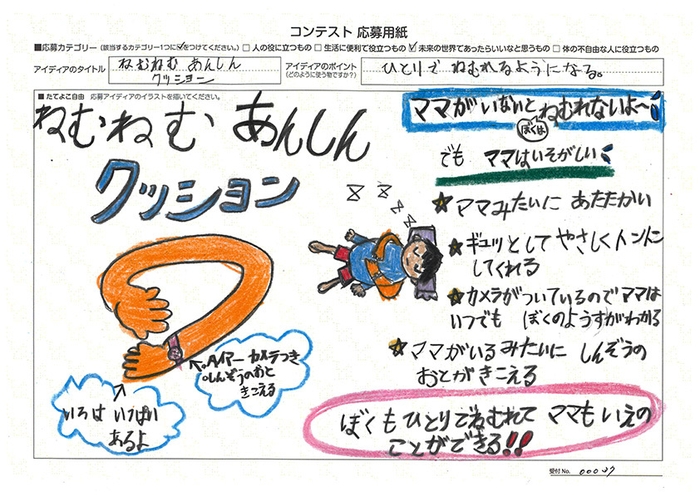 コンテスト 応募用紙
■応募カテゴリー (該当するカテゴリー1つに✓をつけてください。) □ 人の役に立つもの □ 生活に便利で役立つもの ☑ 未来の世界であったらいいなと思うもの □ 体の不自由な人に役立つもの
アイディアのタイトル
ねむねむ あんしん
クッション
アイディアのポイント
(どのように使う物ですか?)
ひとりで ねむれるようになる。
■ たてよこ自由 応募アイディアのイラストを描いてください。
ねむねむ あんしん
クッション
ママがいないと ねむれないよ〜
ぼくは
でも ママはいそがしい
★ママみたいに あたたかい
★ギュッとして やさしくトントン
してくれる
★カメラがついているのでママは
いつでも ぼくのようすがわかる
★ママがいるみたいに しんぞうの
おとがきこえる
ぼくもひとりでねむれて ママもいえの
ことができる!!
カメラつき
しんぞうのおと
きこえる
いろは いっぱい
あるよ
受付No. 00037